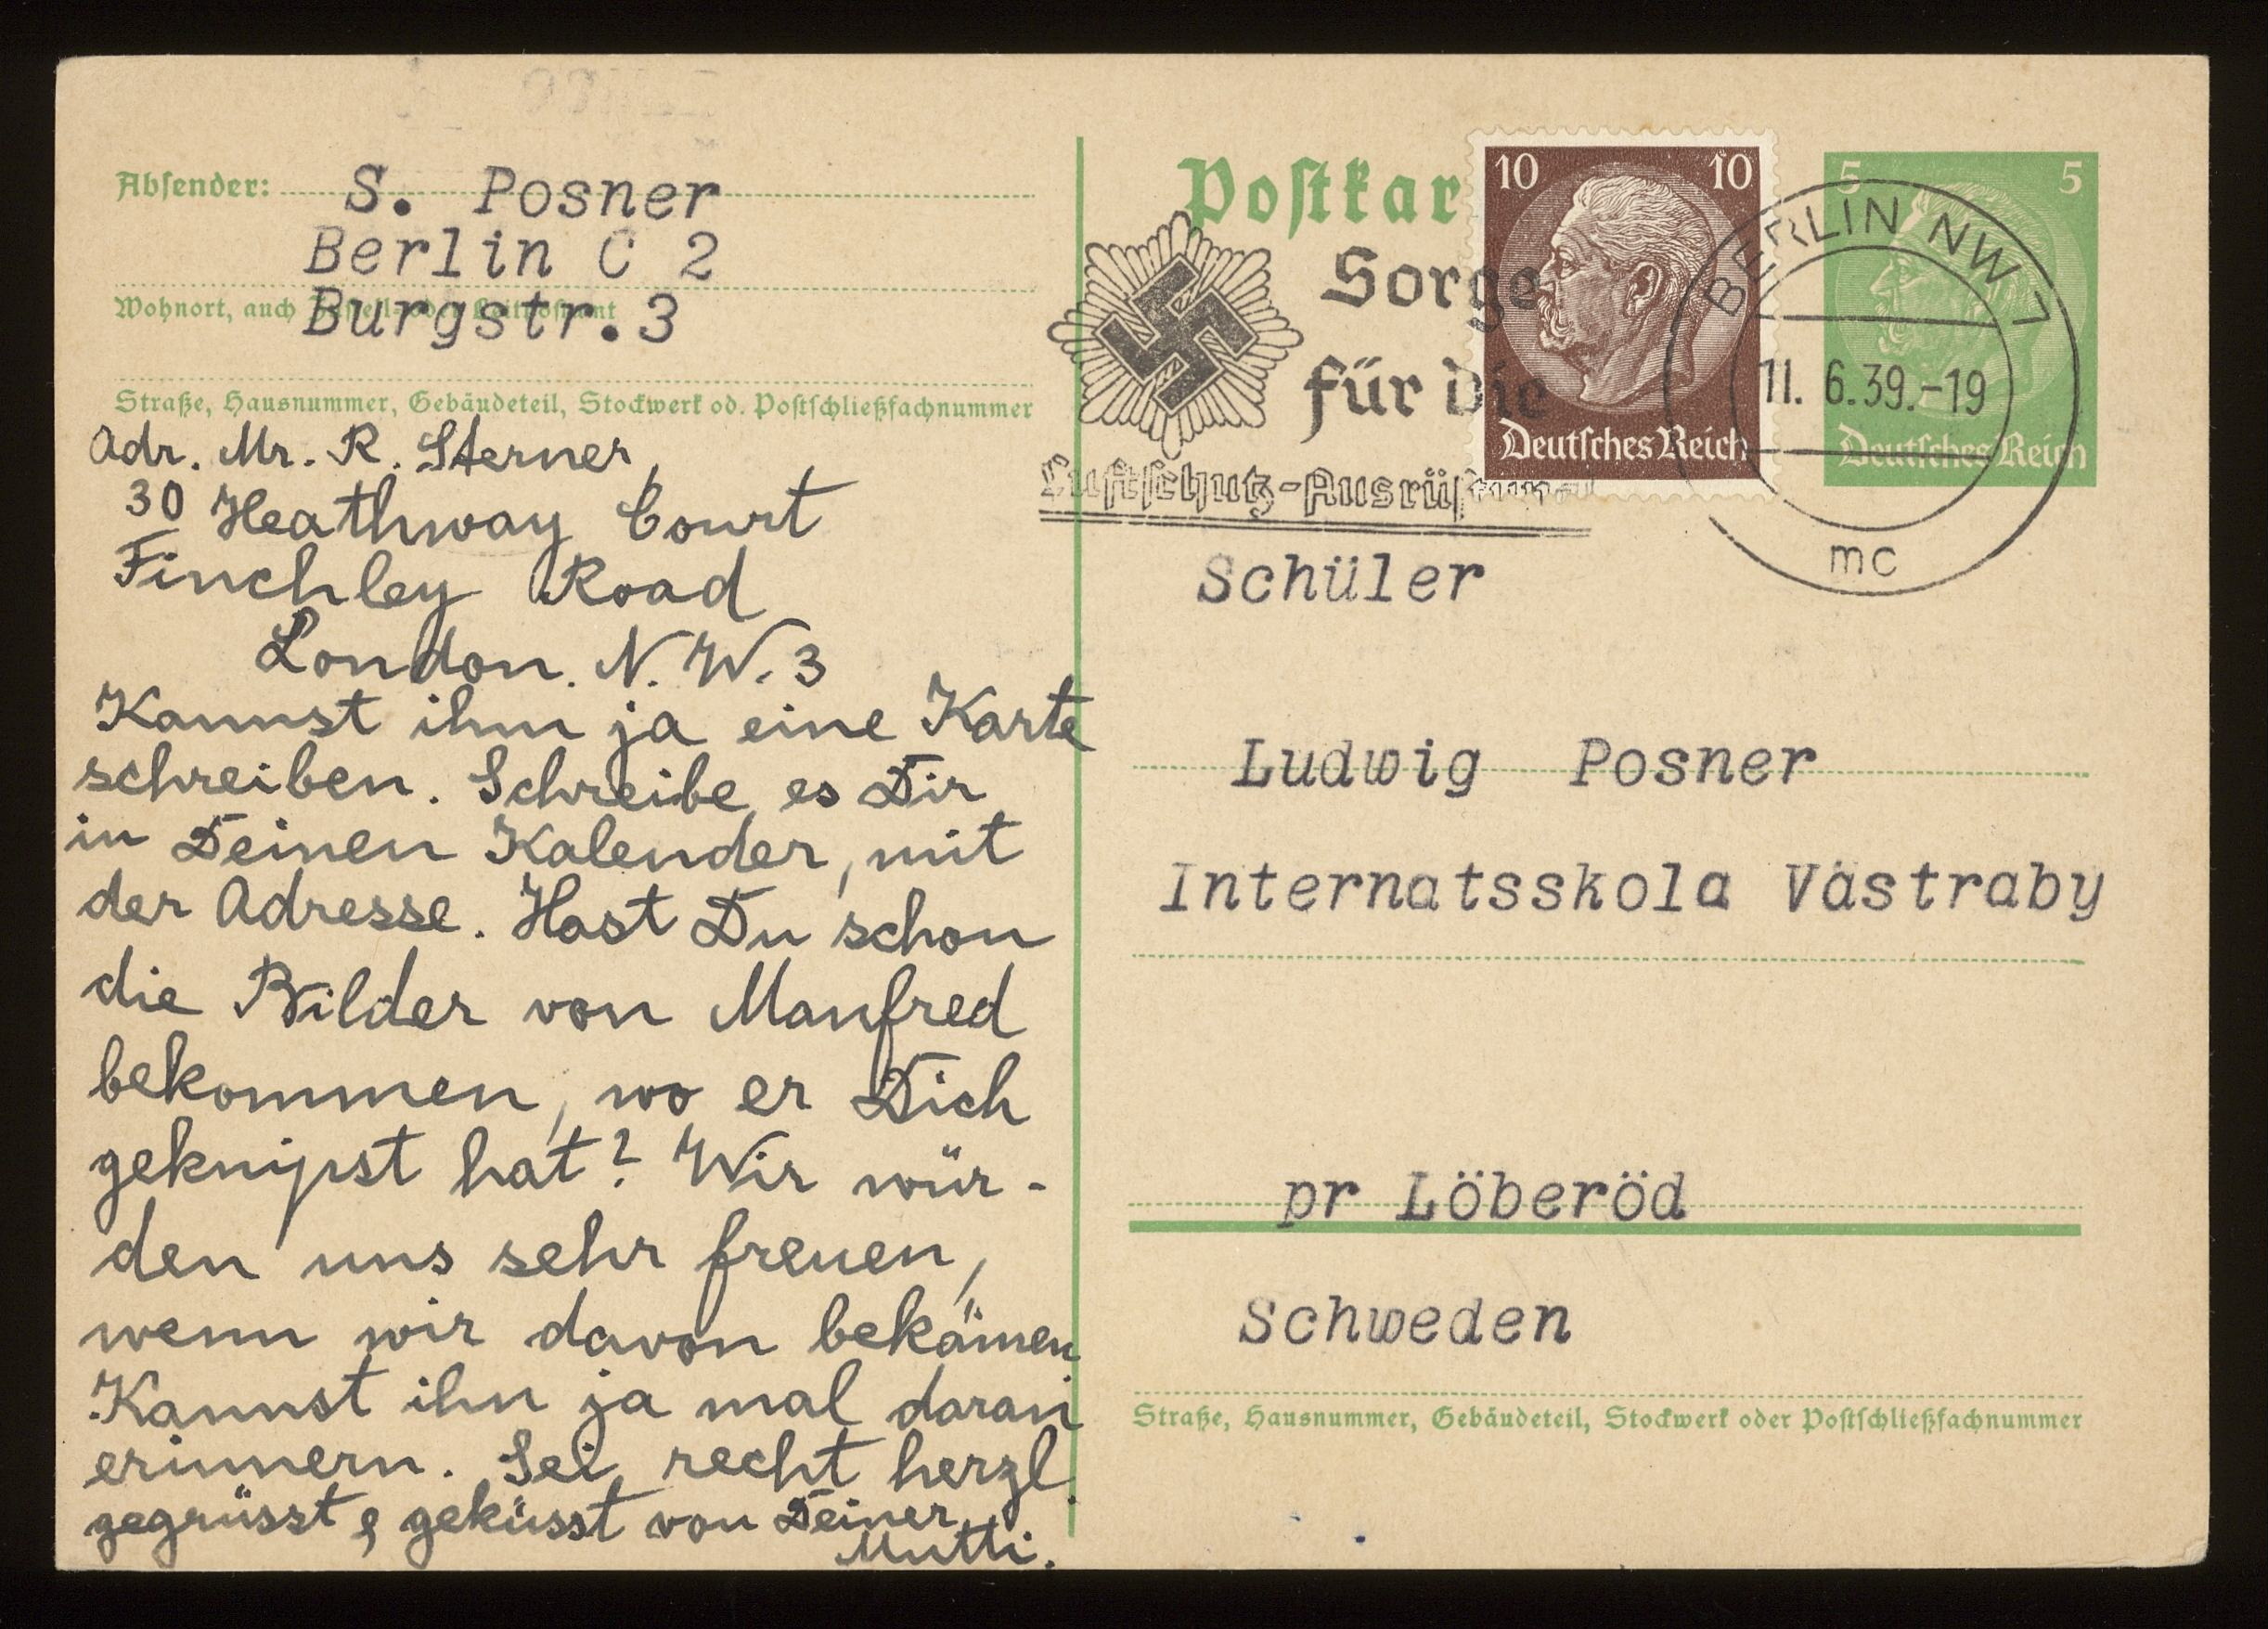 Absender: S. Posner
Berlin C 2
Wohnort, auch
Burgstr. 3
Straße, Hausnummer, Gebäudeteil, Stockwerk od. Postschließfachnummer
Adr. Mr. R. Sterner,
30 Heathway Court
Finchley Road
London. N. W. 3
Kannst ihm ja eine Karte
schreiben. Schreibe es Dir
in Deinen Kalender, mit
der Adresse. Hast Du schon
die Bilder von Manfred
bekommen, wo er Dich
geknipst hat? Wir wür-
den uns sehr freuen,
wenn wir davon bekämen
Kannst ihn ja mal daran
erinnern. Sei recht herzl.
gegrüsst & geküsst von Deiner
Mutti.
Postkar
Sorge
für die
Luftschutz-Ausrüstung
10 10
Deutsches Reich
5 5
Deutsches Reich
BERLIN NW 7
11. 6.39.-19
mc
Schüler
Ludwig Posner
Internatsskola Västraby
pr Löberöd
Schweden
Straße, Hausnummer, Gebäudeteil, Stockwerk oder Postschließfachnummer